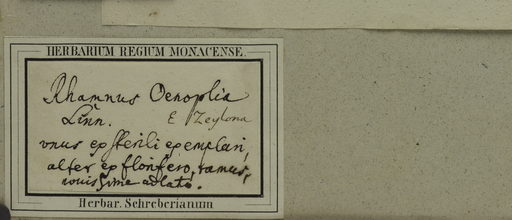 HERBARIUM REGIUM MONACENSE.
Rhamnus Oenoplia
Linn.
E Zeylona
vnus ex sterili exemplari,
alter ex florifero, ramus,
nouissime adlato.
Herbar. Schreberianum